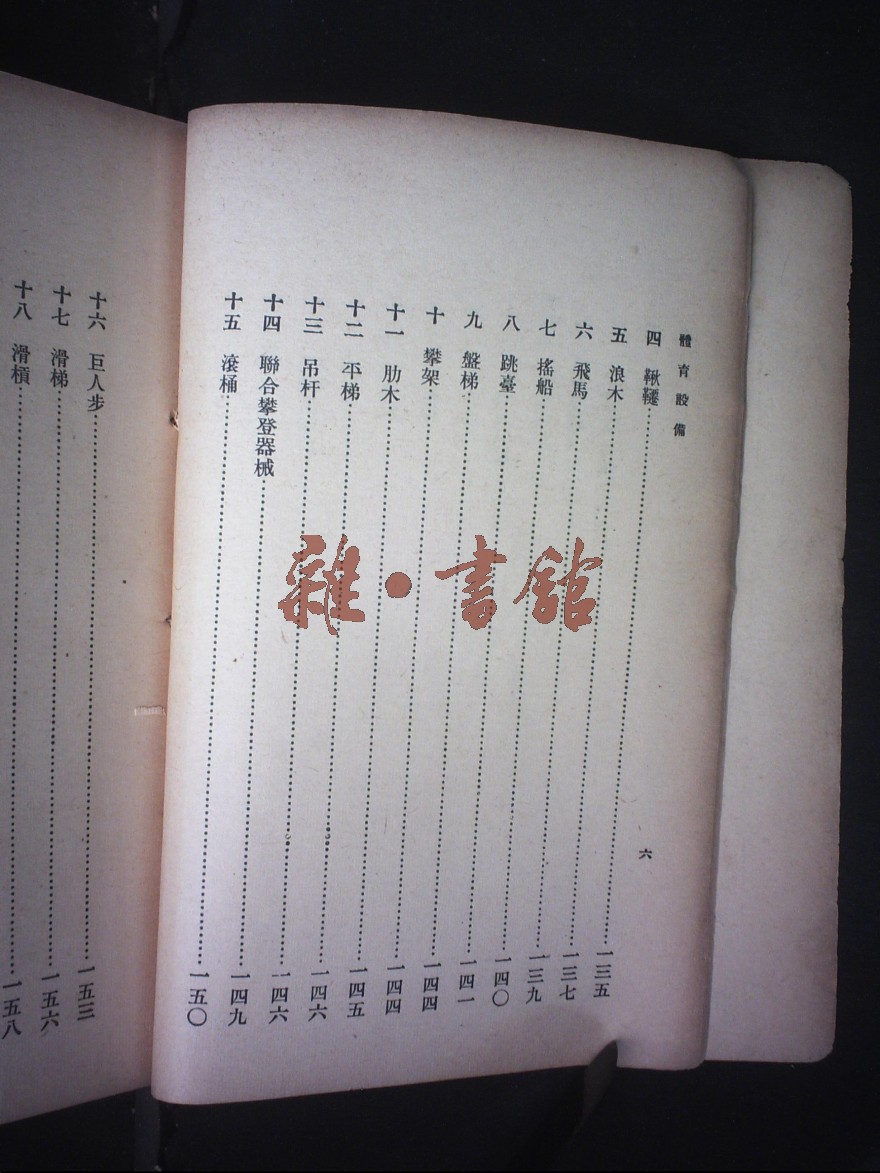 體育設備
六
四 鞦韆……一三五
五 浪木……一三七
六 飛馬……一三九
七 搖船……一四〇
八 跳臺……一四一
九 盤梯……一四四
十 攀架……一四四
十一 肋木……一四五
十二 平梯……一四六
十三 吊杆……一四六
十四 聯合攀登器械……一四九
十五 滾桶……一五〇
十六 巨人步……一五三
十七 滑梯……一五六
十八 滑槓……一五八
雜·書館